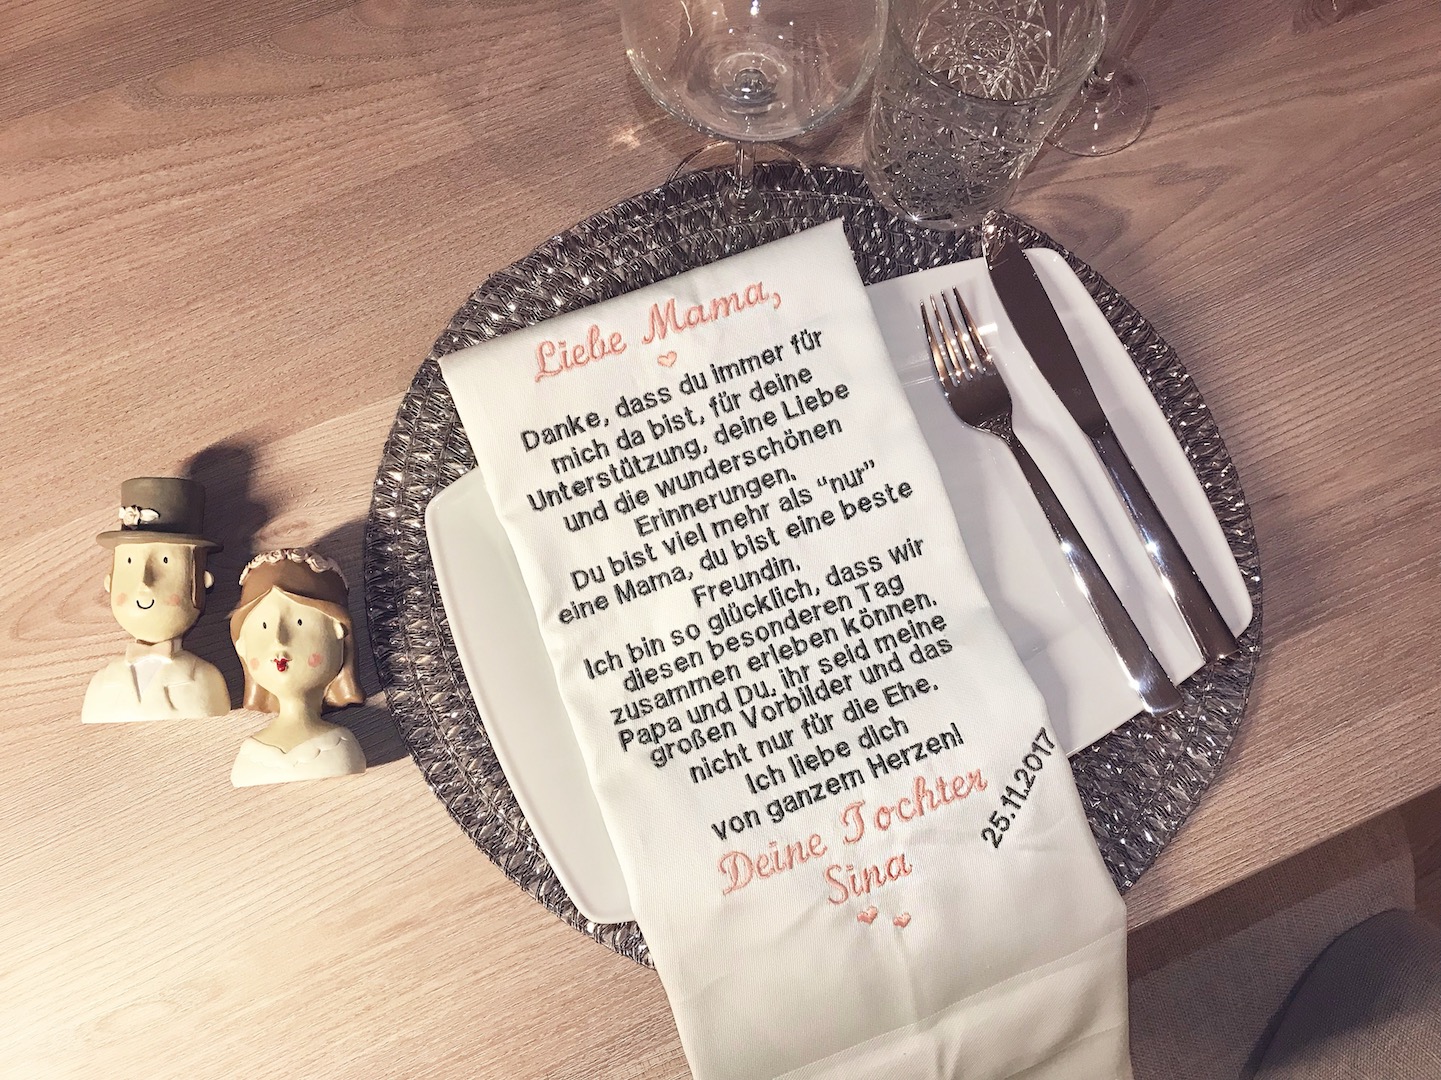 Liebe Mama,
Danke, dass du immer für
mich da bist, für deine
Unterstützung, deine Liebe
und die wunderschönen
Erinnerungen.
Du bist viel mehr als “nur”
eine Mama, du bist eine beste
Freundin.
Ich bin so glücklich, dass wir
diesen besonderen Tag
zusammen erleben können.
Papa und Du, ihr seid meine
großen Vorbilder und das
nicht nur für die Ehe.
Ich liebe dich
von ganzem Herzen!
Deine Tochter
Sina
25.11.2017